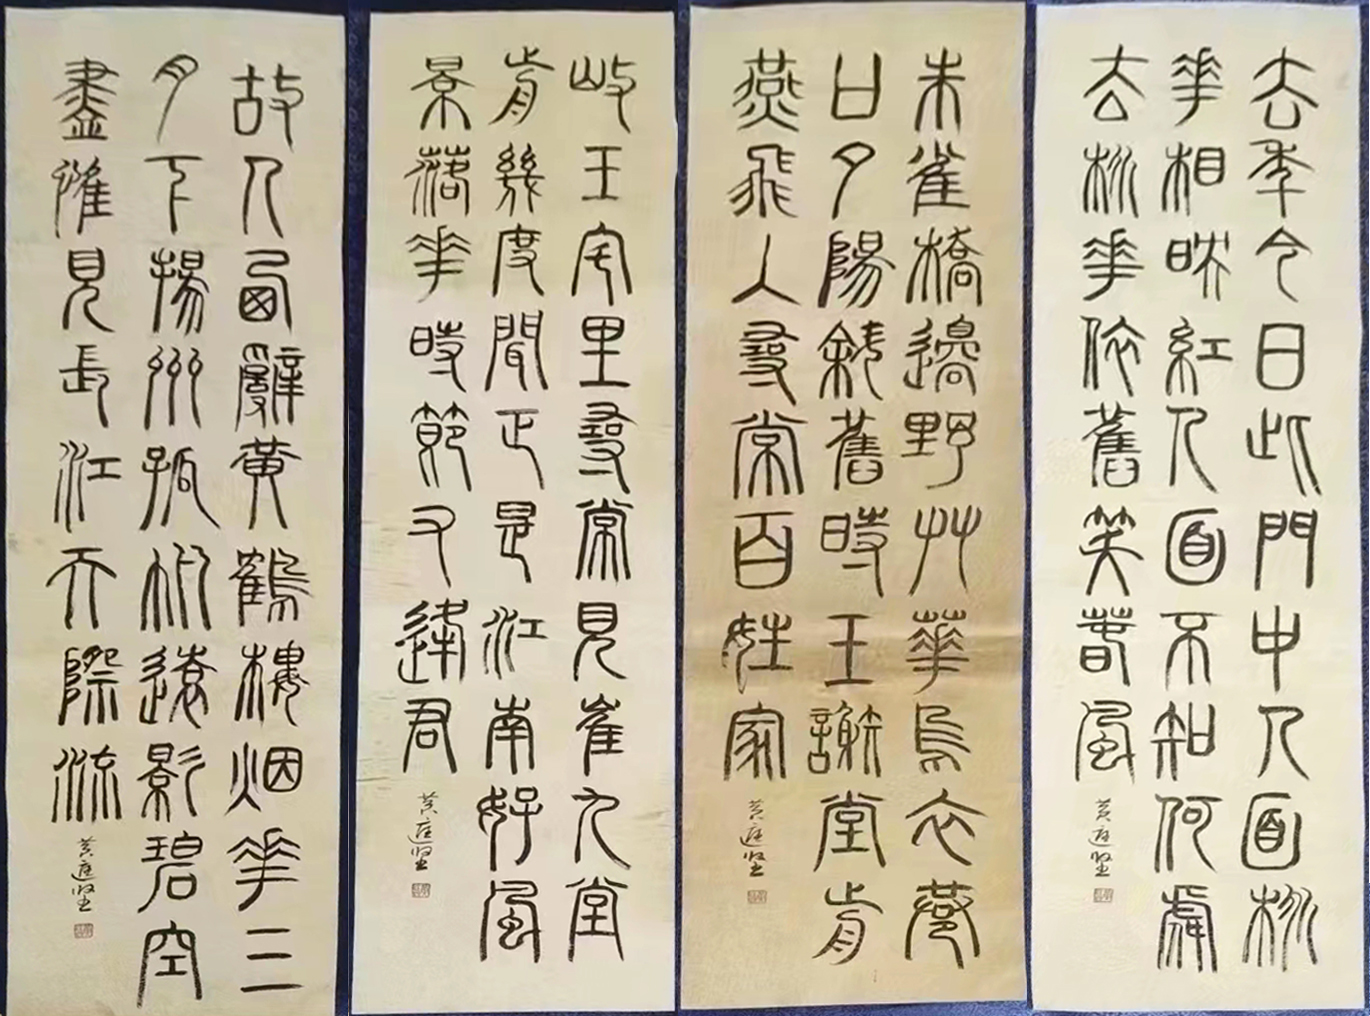 去年今日此門中人面桃
華相映紅人面不知何處
去桃華依舊笑春風
黃庭堅
朱雀橋邊野艸華烏衣巷
口夕陽斜舊時王謝堂前
燕飛入尋常百姓家
黃庭堅
岐王宅里尋常見崔九堂
前幾度聞正是江南好風
景落華時節又逢君
黃庭堅
故人西辭黃鶴樓烟華三
月下揚州孤帆遠影碧空
盡惟見長江天際流
黃庭堅